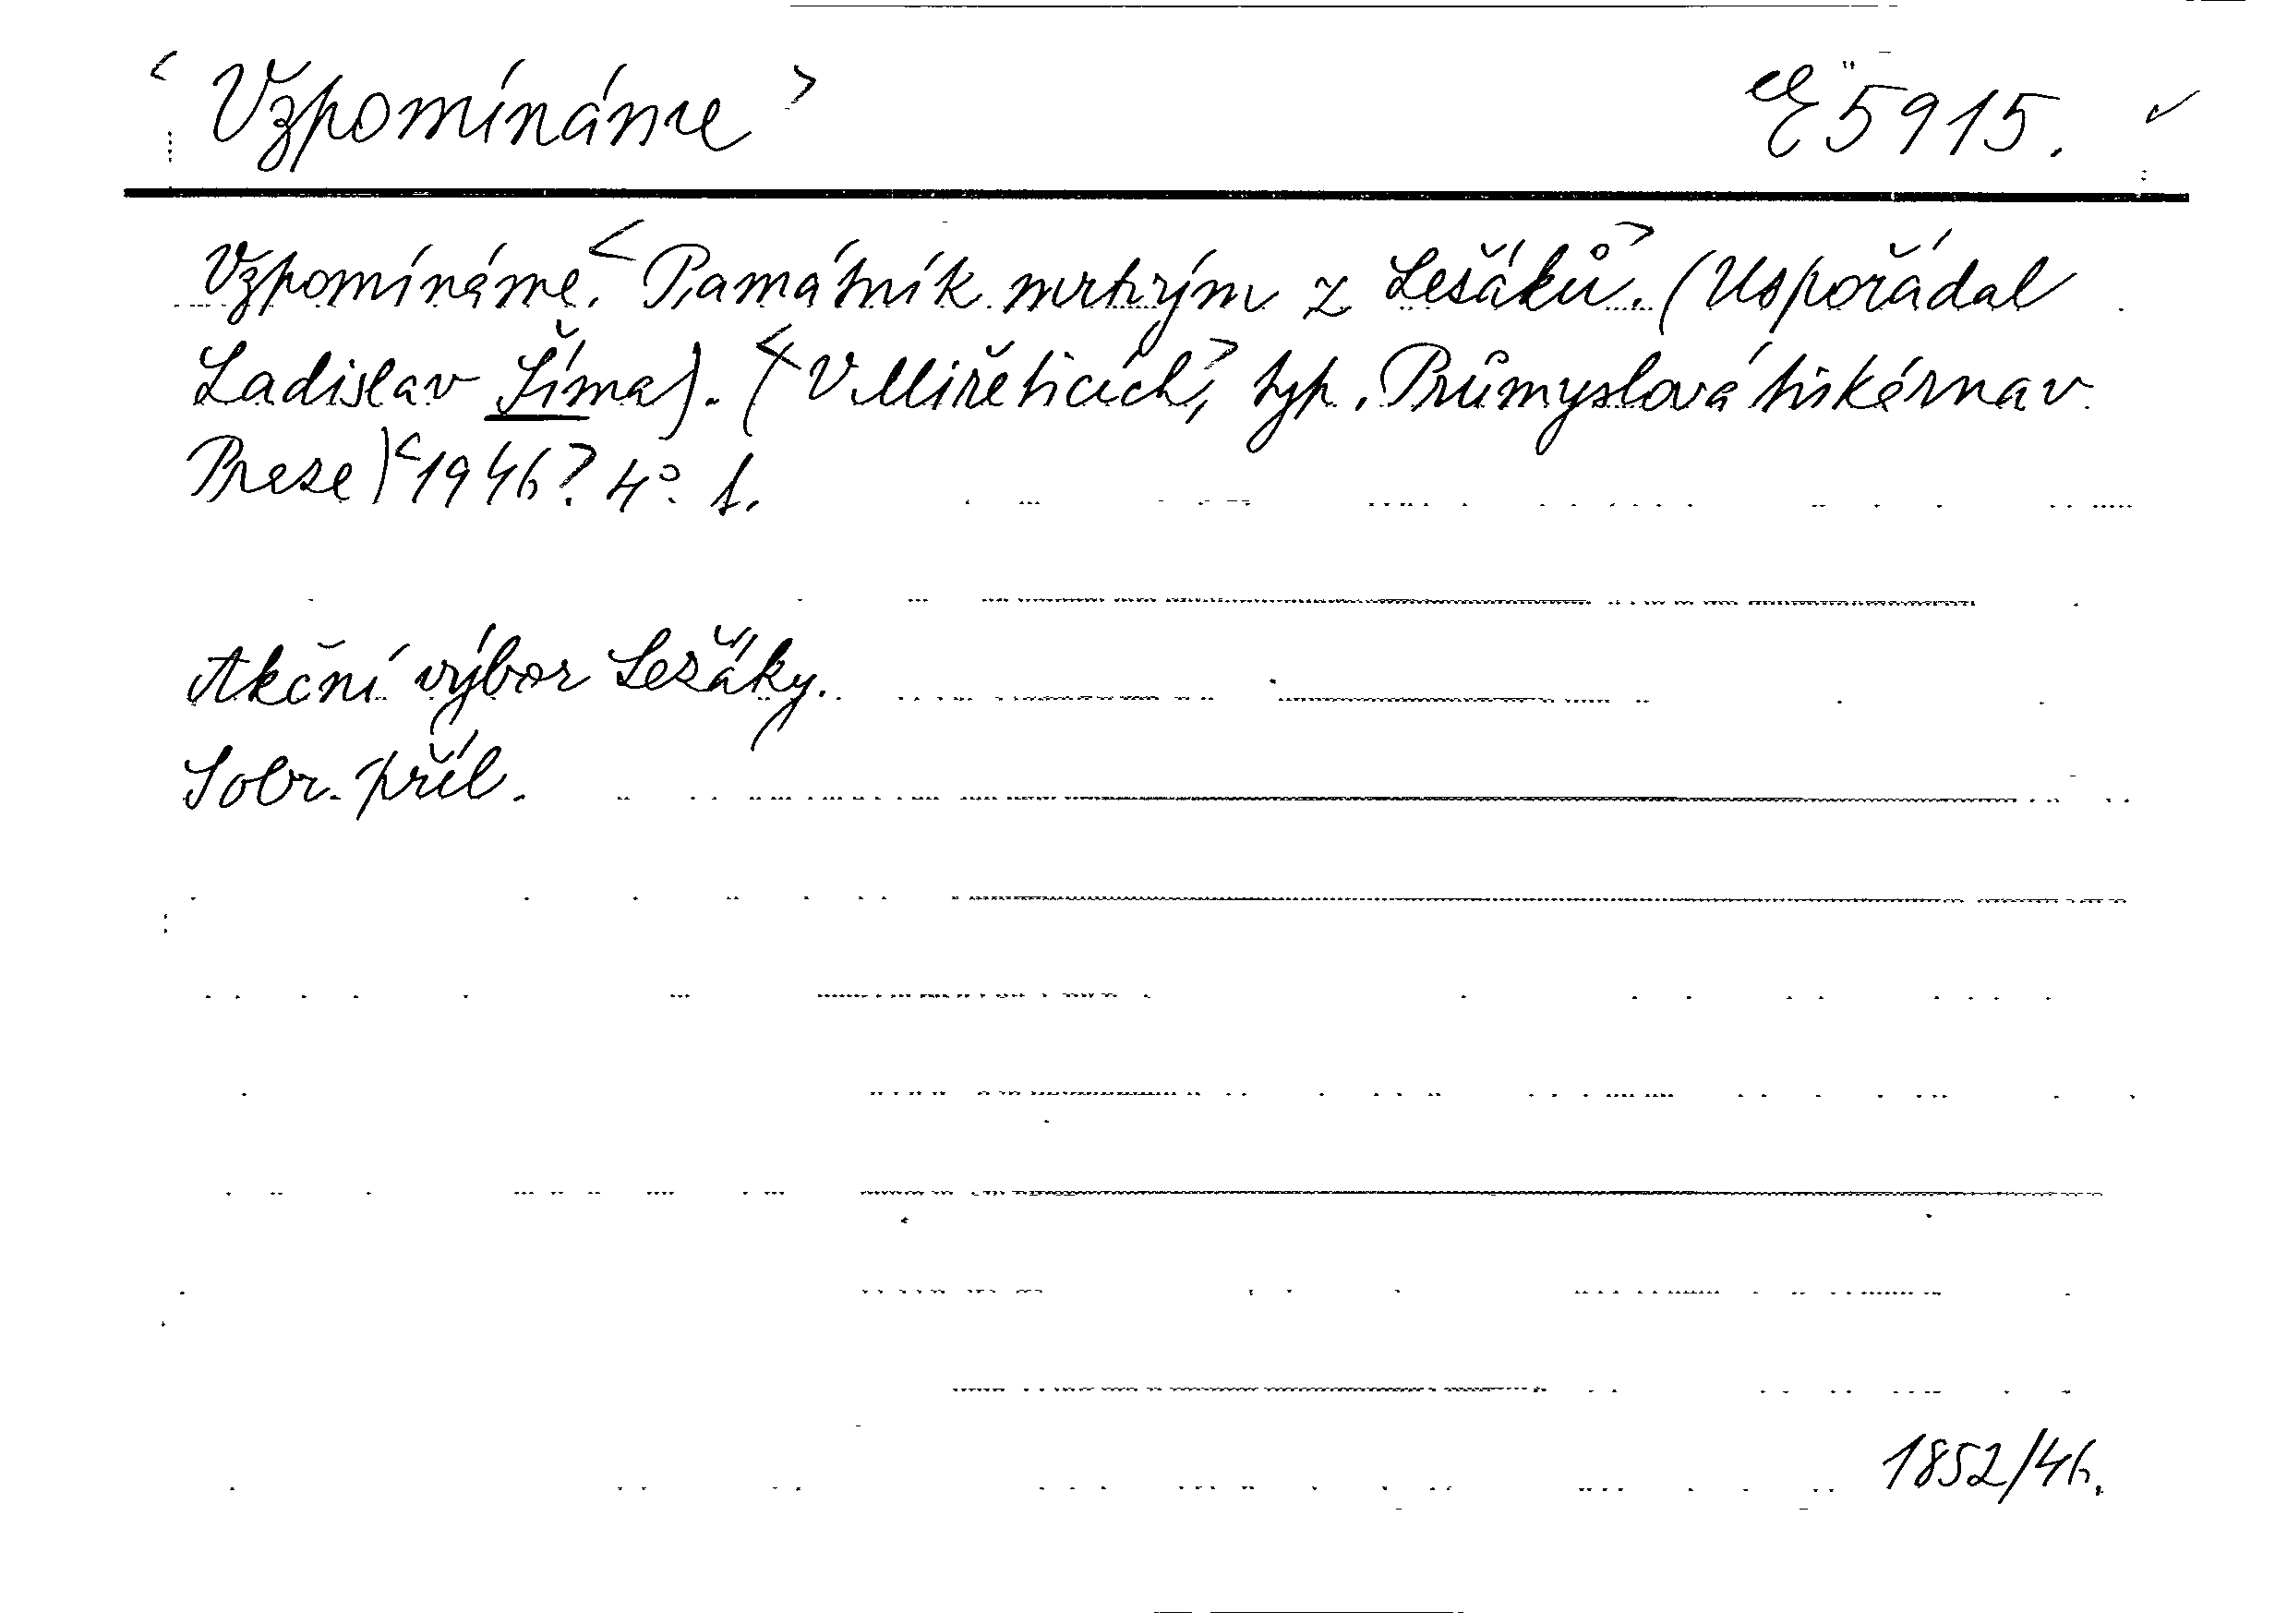 < Vzpomínáme > 5915.
Vzpomínáme. < Památník mrtvým z Lešáků. > (Uspořádal
Ladislav Šíma). (< V Miřeticích, > typ. Průmyslová tiskárna v
Praze) < 1946? 4°. s.
Akční výbor Ležáky.
S obr. příl.
1852/46.